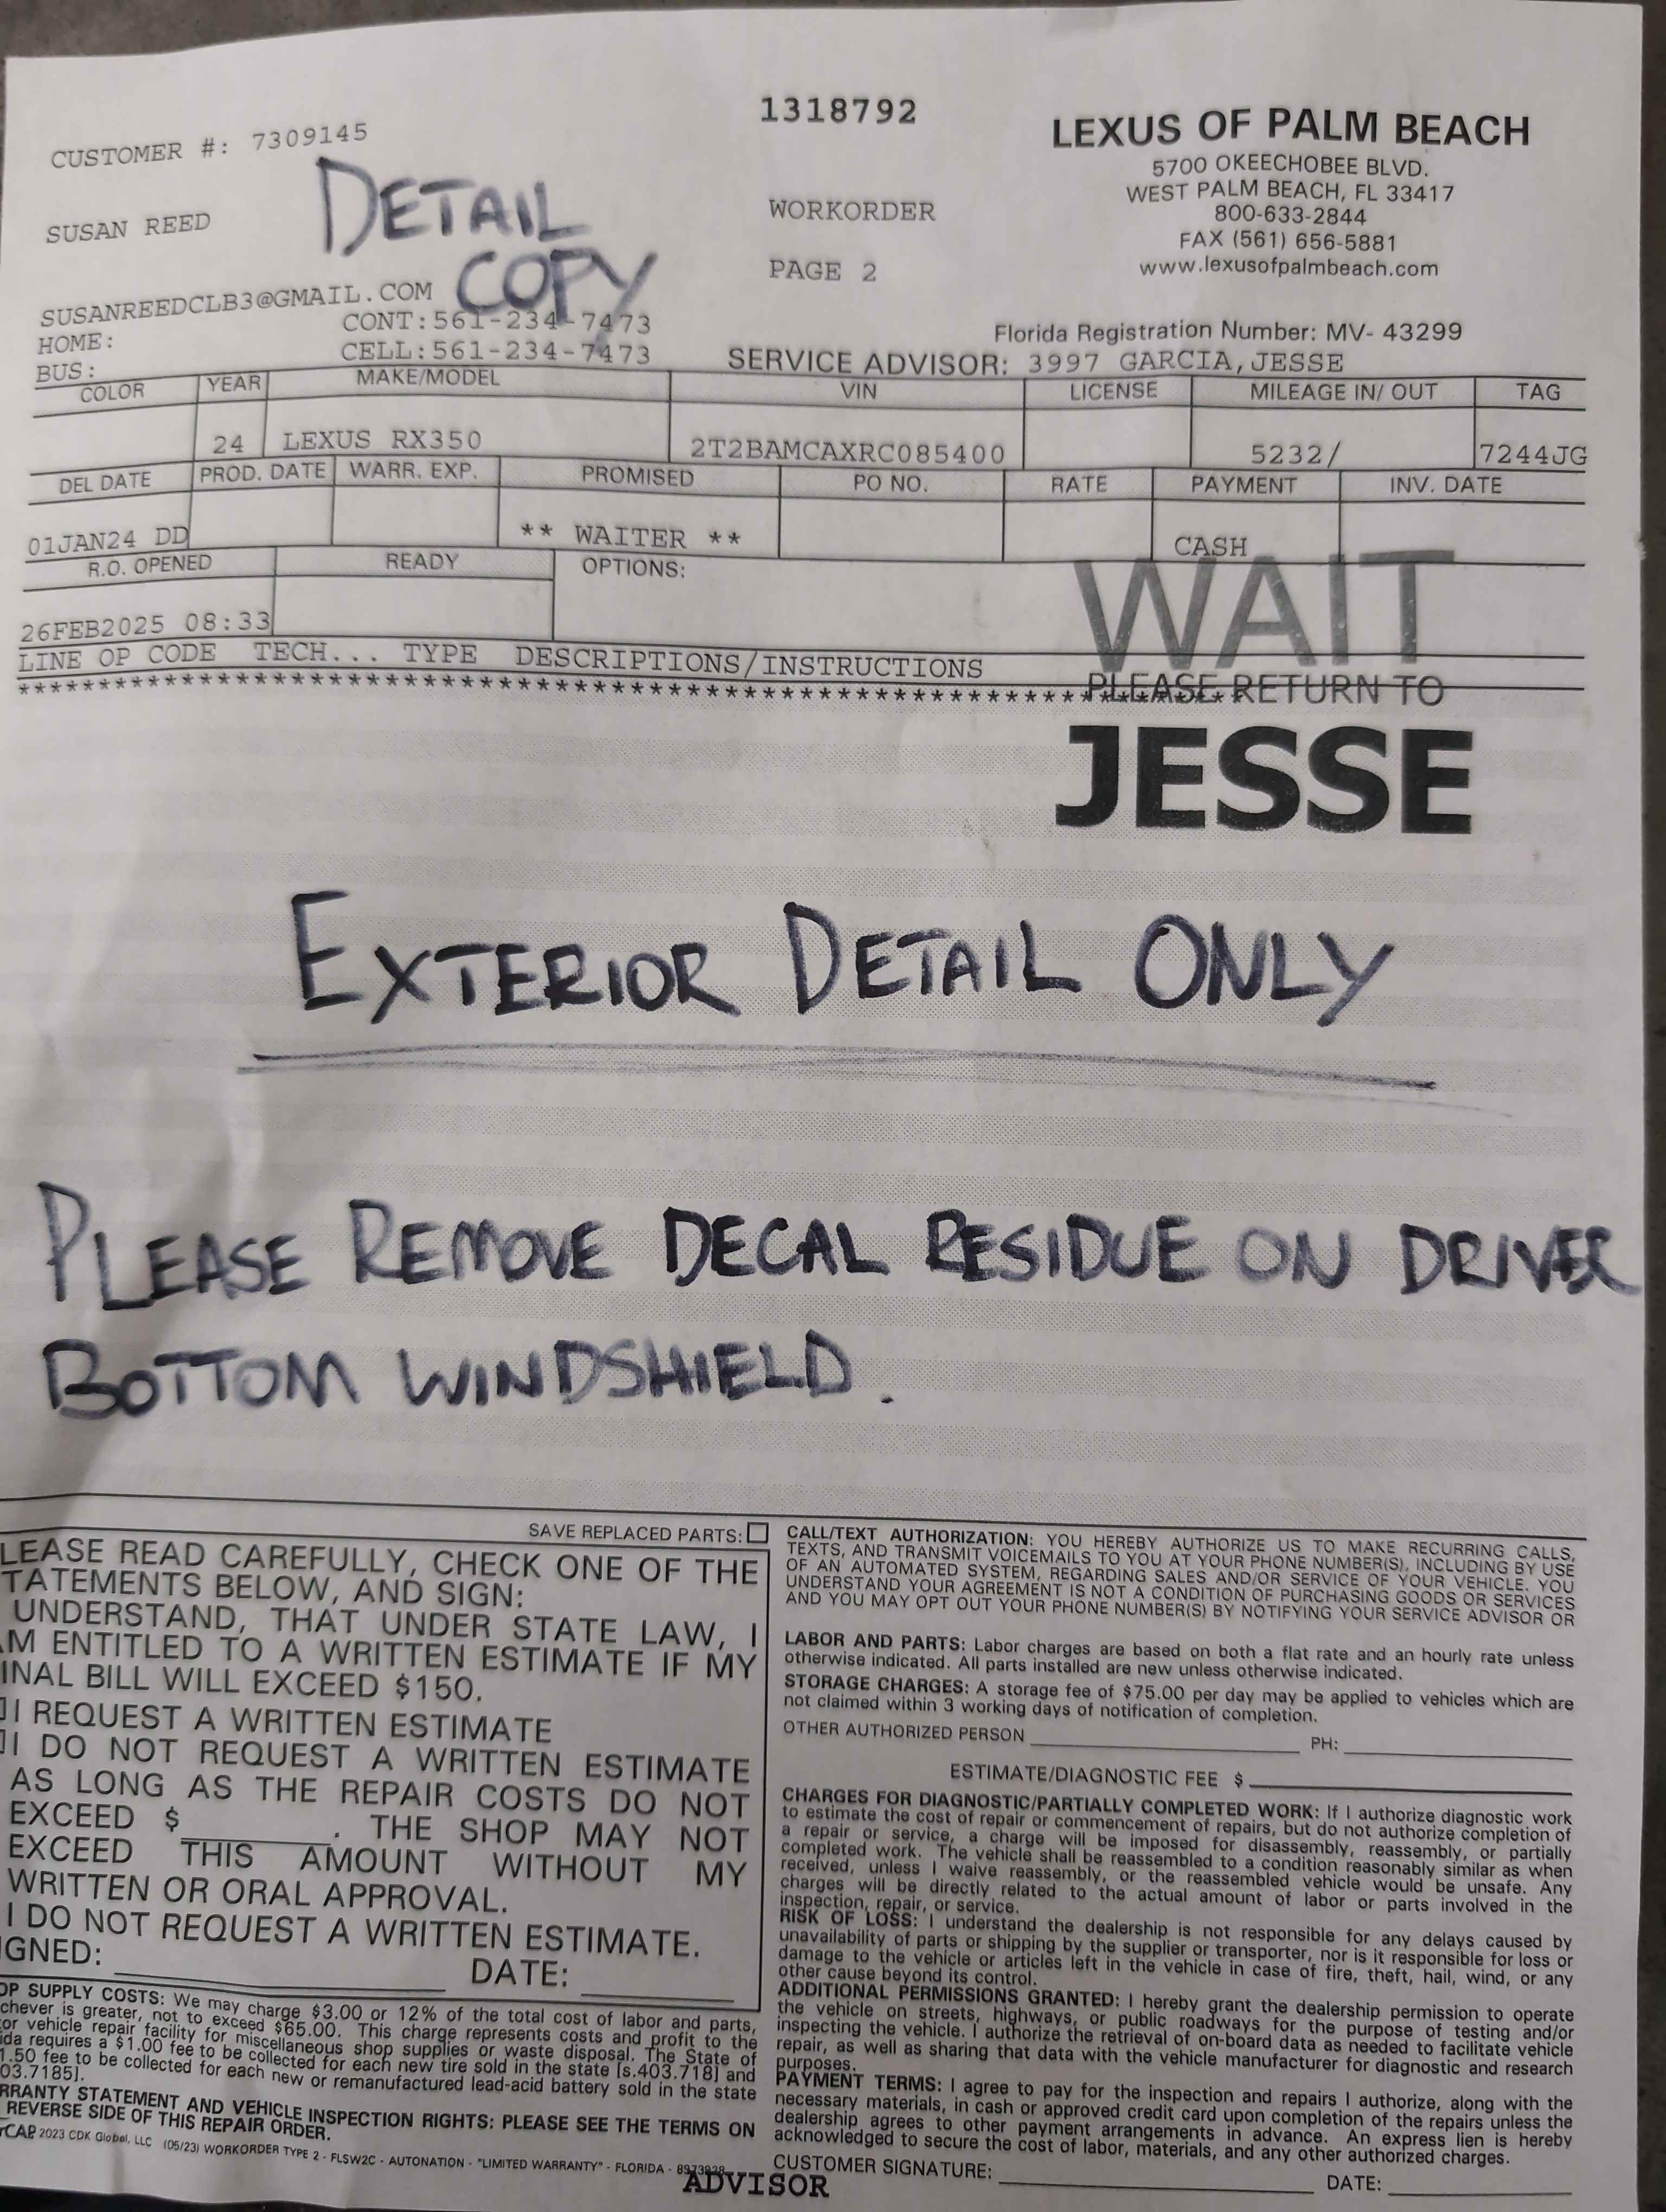 1318792
LEXUS OF PALM BEACH
5700 OKEECHOBEE BLVD.
WEST PALM BEACH, FL 33417
800-633-2844
FAX (561) 656-5881
www.lexusofpalmbeach.com
CUSTOMER #: 7309145
DETAIL
COPY
SUSAN REED
WORKORDER
PAGE 2
SUSANREEDCLB3@GMAIL.COM
HOME: CONT:561-234-7473
BUS: CELL:561-234-7473
Florida Registration Number: MV- 43299
SERVICE ADVISOR: 3997 GARCIA,JESSE
COLOR YEAR MAKE/MODEL VIN LICENSE MILEAGE IN/ OUT TAG
24 LEXUS RX350 2T2BAMCAXRC085400 5232/ 7244JG
DEL DATE PROD. DATE WARR. EXP. PROMISED PO NO. RATE PAYMENT INV. DATE
01JAN24 DD ** WAITER ** CASH
R.O. OPENED READY OPTIONS:
26FEB2025 08:33
WAIT
LINE OP CODE TECH... TYPE DESCRIPTIONS/INSTRUCTIONS
PLEASE RETURN TO
JESSE
EXTERIOR DETAIL ONLY
PLEASE REMOVE DECAL RESIDUE ON DRIVER
BOTTOM WINDSHIELD.
SAVE REPLACED PARTS:
LEASE READ CAREFULLY, CHECK ONE OF THE
TATEMENTS BELOW, AND SIGN:
UNDERSTAND, THAT UNDER STATE LAW, I
M ENTITLED TO A WRITTEN ESTIMATE IF MY
INAL BILL WILL EXCEED $150.
I REQUEST A WRITTEN ESTIMATE
I DO NOT REQUEST A WRITTEN ESTIMATE
AS LONG AS THE REPAIR COSTS DO NOT
EXCEED $________. THE SHOP MAY NOT
EXCEED THIS AMOUNT WITHOUT MY
WRITTEN OR ORAL APPROVAL.
I DO NOT REQUEST A WRITTEN ESTIMATE.
IGNED: ________ DATE: ________
OP SUPPLY COSTS: We may charge $3.00 or 12% of the total cost of labor and parts,
chever is greater, not to exceed $65.00. This charge represents costs and profit to the
or vehicle repair facility for miscellaneous shop supplies or waste disposal. The State of
ida requires a $1.00 fee to be collected for each new tire sold in the state [s.403.718] and
1.50 fee to be collected for each new or remanufactured lead-acid battery sold in the state
03.7185].
RRANTY STATEMENT AND VEHICLE INSPECTION RIGHTS: PLEASE SEE THE TERMS ON
REVERSE SIDE OF THIS REPAIR ORDER.
CAP 2023 CDK Global, LLC (05/23) WORKORDER TYPE 2 - FLSW2C - AUTONATION - "LIMITED WARRANTY" - FLORIDA -
CALL/TEXT AUTHORIZATION: YOU HEREBY AUTHORIZE US TO MAKE RECURRING CALLS,
TEXTS, AND TRANSMIT VOICEMAILS TO YOU AT YOUR PHONE NUMBER(S), INCLUDING BY USE
OF AN AUTOMATED SYSTEM, REGARDING SALES AND/OR SERVICE OF YOUR VEHICLE. YOU
UNDERSTAND YOUR AGREEMENT IS NOT A CONDITION OF PURCHASING GOODS OR SERVICES
AND YOU MAY OPT OUT YOUR PHONE NUMBER(S) BY NOTIFYING YOUR SERVICE ADVISOR OR
LABOR AND PARTS: Labor charges are based on both a flat rate and an hourly rate unless
otherwise indicated. All parts installed are new unless otherwise indicated.
STORAGE CHARGES: A storage fee of $75.00 per day may be applied to vehicles which are
not claimed within 3 working days of notification of completion.
OTHER AUTHORIZED PERSON ________ PH: ________
ESTIMATE/DIAGNOSTIC FEE $ ________
CHARGES FOR DIAGNOSTIC/PARTIALLY COMPLETED WORK: If I authorize diagnostic work
to estimate the cost of repair or commencement of repairs, but do not authorize completion of
a repair or service, a charge will be imposed for disassembly, reassembly, or partially
completed work. The vehicle shall be reassembled to a condition reasonably similar as when
received, unless I waive reassembly, or the reassembled vehicle would be unsafe. Any
charges will be directly related to the actual amount of labor or parts involved in the
inspection, repair, or service.
RISK OF LOSS: I understand the dealership is not responsible for any delays caused by
unavailability of parts or shipping by the supplier or transporter, nor is it responsible for loss or
damage to the vehicle or articles left in the vehicle in case of fire, theft, hail, wind, or any
other cause beyond its control.
ADDITIONAL PERMISSIONS GRANTED: I hereby grant the dealership permission to operate
the vehicle on streets, highways, or public roadways for the purpose of testing and/or
inspecting the vehicle. I authorize the retrieval of on-board data as needed to facilitate vehicle
repair, as well as sharing that data with the vehicle manufacturer for diagnostic and research
purposes.
PAYMENT TERMS: I agree to pay for the inspection and repairs I authorize, along with the
necessary materials, in cash or approved credit card upon completion of the repairs unless the
dealership agrees to other payment arrangements in advance. An express lien is hereby
acknowledged to secure the cost of labor, materials, and any other authorized charges.
CUSTOMER SIGNATURE: ________ DATE: ________
ADVISOR